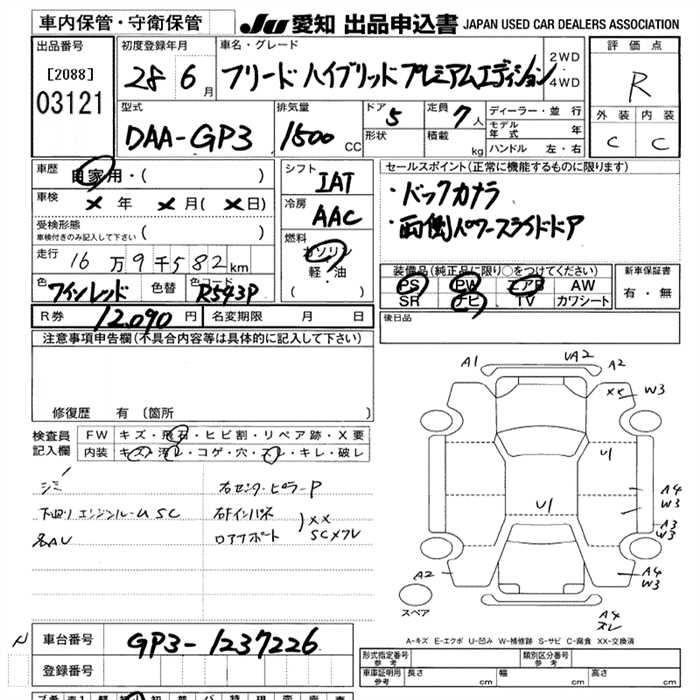 車内保管・守衛保管 JU 愛知 出品申込書 JAPAN USED CAR DEALERS ASSOCIATION
出品番号 初度登録年月 車名・グレード 評価点
[2088] 28 6月 フリード ハイブリッド プレミアムエディション 2WD 4WD R
03121
型式 排気量 ドア 5 定員 7人 ディーラー・並行 外装 内装
DAA-GP3 1500 CC 形状 積載 kg モデル年式 年 C C
ハンドル 左・右
車歴 自家用・( ) シフト IAT セールスポイント(正常に機能するものに限ります)
車検 × 年 × 月(× 日) 冷房 AAC ・バックカメラ
受検形態 ・両側パワースライドドア
車検付きのみ記入して下さい ( ) 燃料 ガソリン
走行 16万9千582km 軽・油 装備品(純正品に限り○をつけてください) 新車保証書
色 ワインレッド 色替 色コード R543P ( ) PS PW エアB AW 有・無
SR ナビ TV カワシート
R券 12,090円 名変期限 月 日 後日品
注意事項申告欄(不具合内容等は具体的に記入して下さい)
修復歴 有 (箇所 )
A1 UA2 A2
×× W3
検査員 FW キズ・飛石・ヒビ割・リペア跡・X要
記入欄 内装 キズ・汚レ・コゲ・穴・スレ・キレ・破レ
U1
U1
シミ 右センターピラーP
下廻りエンジンルームSC 右Fインハネ
各AU ロアサポート )×× SCメクレ
A4
W3
A3
W3
A2 A4
W3
スペア
A4
ズレ
A-キズ E-エクボ U-凹み W-補修跡 S-サビ C-腐食 XX-交換済
N 車台番号 GP3-1237226
登録番号
形式指定番号 参考 類別区分番号 参考
車庫証明用 参考 長さ cm 幅 cm 高さ cm